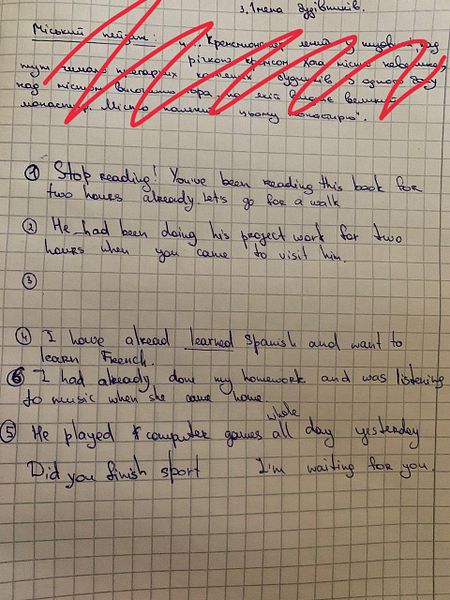 3. Імена будівників.
Міський пейзаж:
річкою
тут чимало прегарних будинків з одного боку
над містом гора, на якій великий
монастир. Місто цьому монастирю".
① Stop reading! You've been reading this book for
two hours already Let's go for a walk
② He had been doing his project work for two
hours when you came to visit him.
③
④ I have alread learned Spanish and want to
learn French.
⑥ I had already done my homework and was listening
to music when she came home.
⑤ He played computer games all whole day yesterday
Did you finish sport I'm waiting for you.